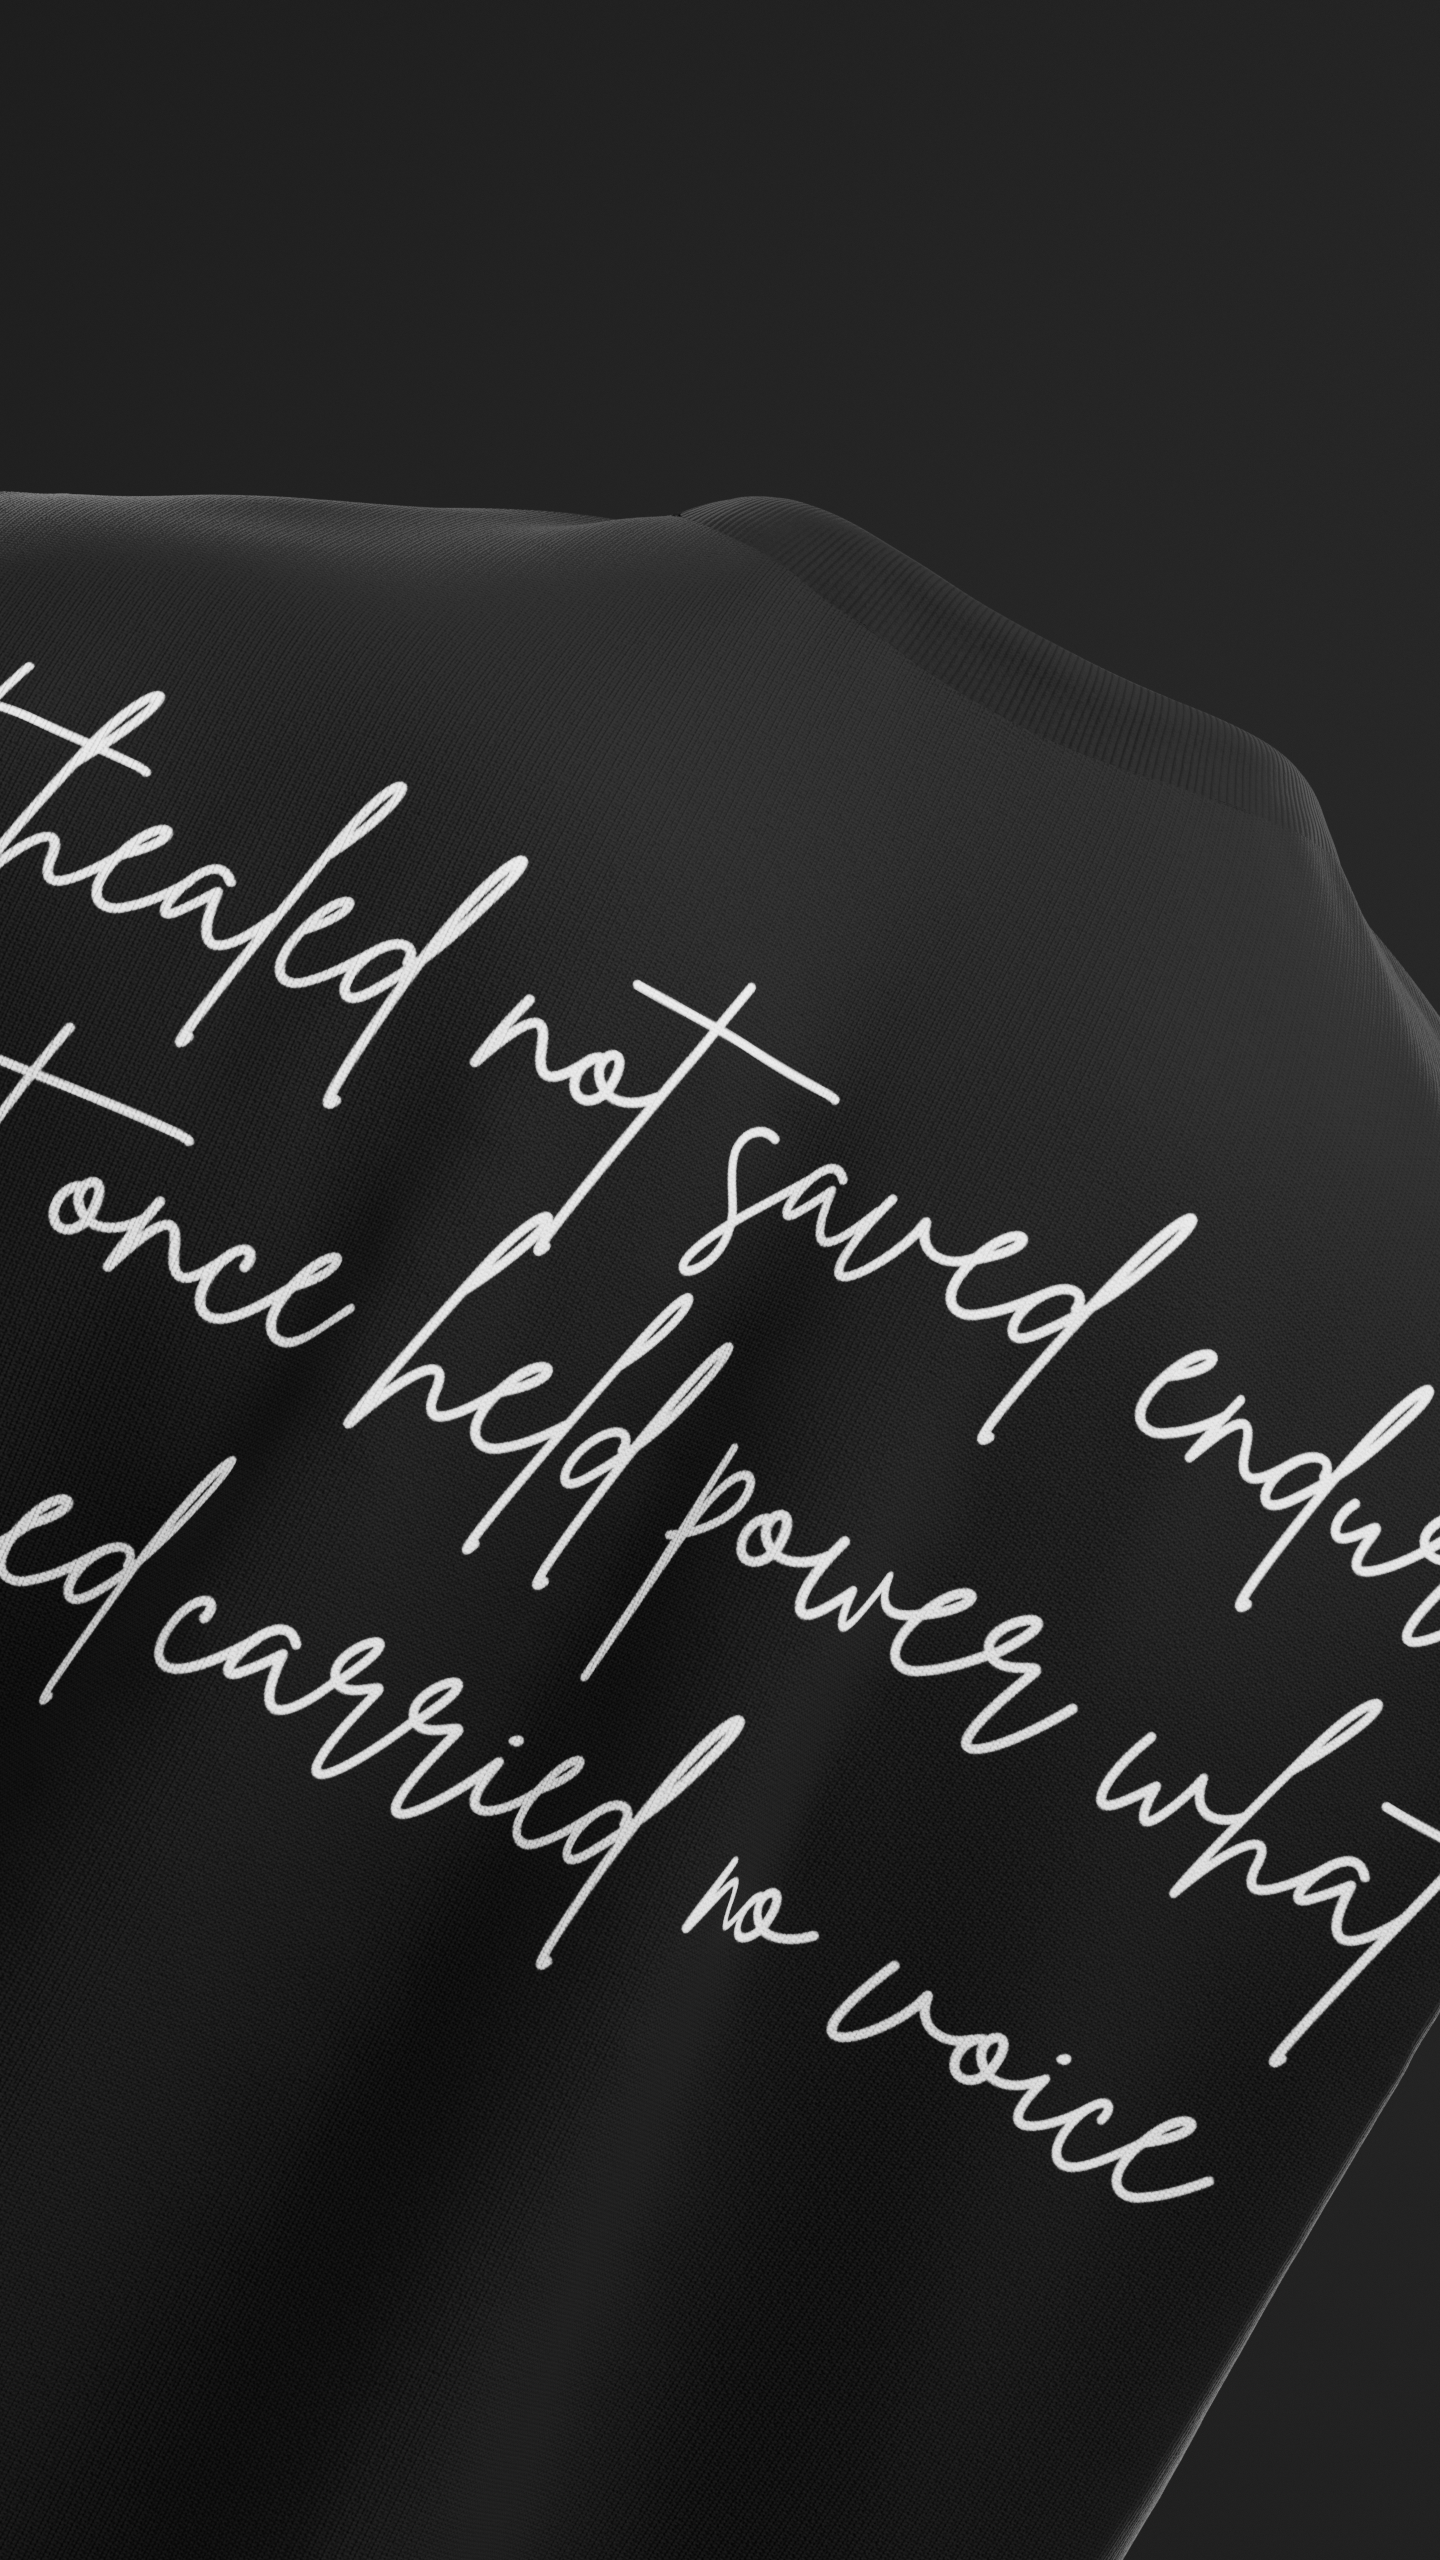 t healed not saved endur
t once held power what
ed carried no voice